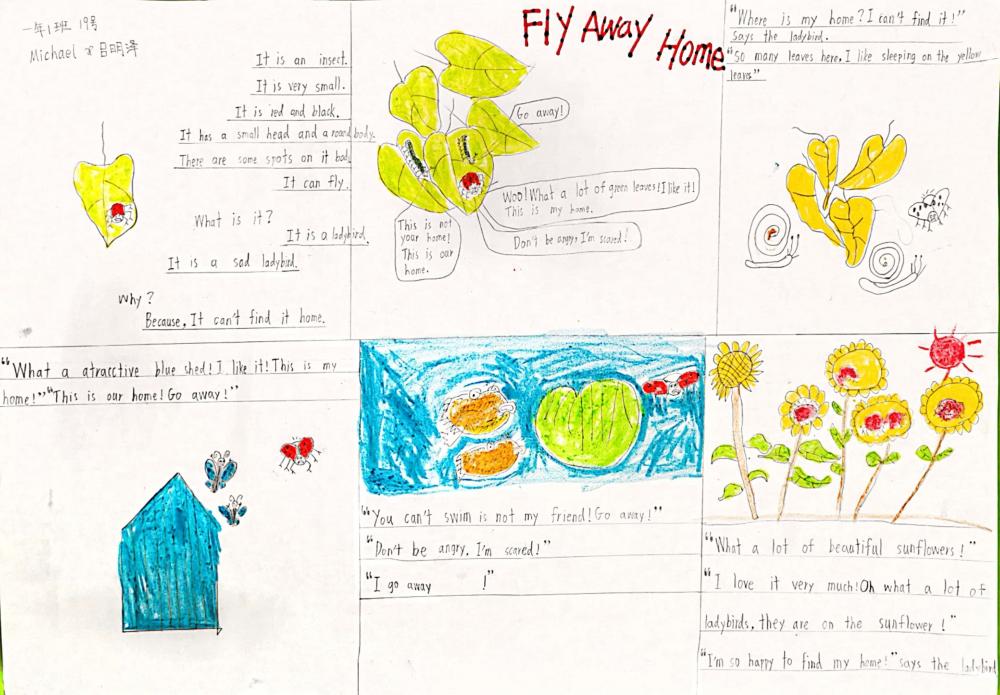 一年1班 19号
Michael 吕明泽
It is an insect.
It is very small.
It is red and black.
It has a small head and a round body.
There are some spots on it bod
It can fly.
What is it?
It is a ladybird.
It is a sad ladybird.
Why?
Because, It can't find it home.
Fly Away Home
Go away!
Woo! What a lot of green leaves! I like it!
This is my home.
Don't be angry, I'm scared!
This is not
your home!
This is our
home.
"Where is my home? I can't find it!"
says the ladybird.
"So many leaves here, I like sleeping on the yellow
leaves"
"What a atracctive blue shed! I like it! This is my
home!" "This is our home! Go away!"
"You can't swim is not my friend! Go away!"
"Don't be angry. I'm scared!"
"I go away !"
"What a lot of beautiful sunflowers!"
"I love it very much! Oh what a lot of
ladybirds, they are on the sunflower!"
"I'm so happy to find my home!" says the ladybird